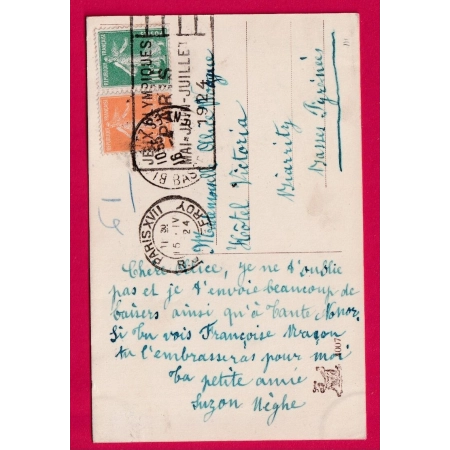 REPUBLIQUE FRANÇAISE
REPUBLIQUE FRANÇAISE
JEUX OLYMPIQUES
PARIS
MAI-JUIN-JUILLET
1924
PARIS XVII
15 - IV
24
Mademoiselle
Hôtel Victoria
Biarritz
Basses Pyrénées
Chère Alice, je ne t'oublie
pas et je t'envoie beaucoup de
baisers ainsi qu'à tante Nonor.
Si tu vois Françoise Maçon
tu l'embrasseras pour moi
ta petite amie
Suzon Nèghe
1007